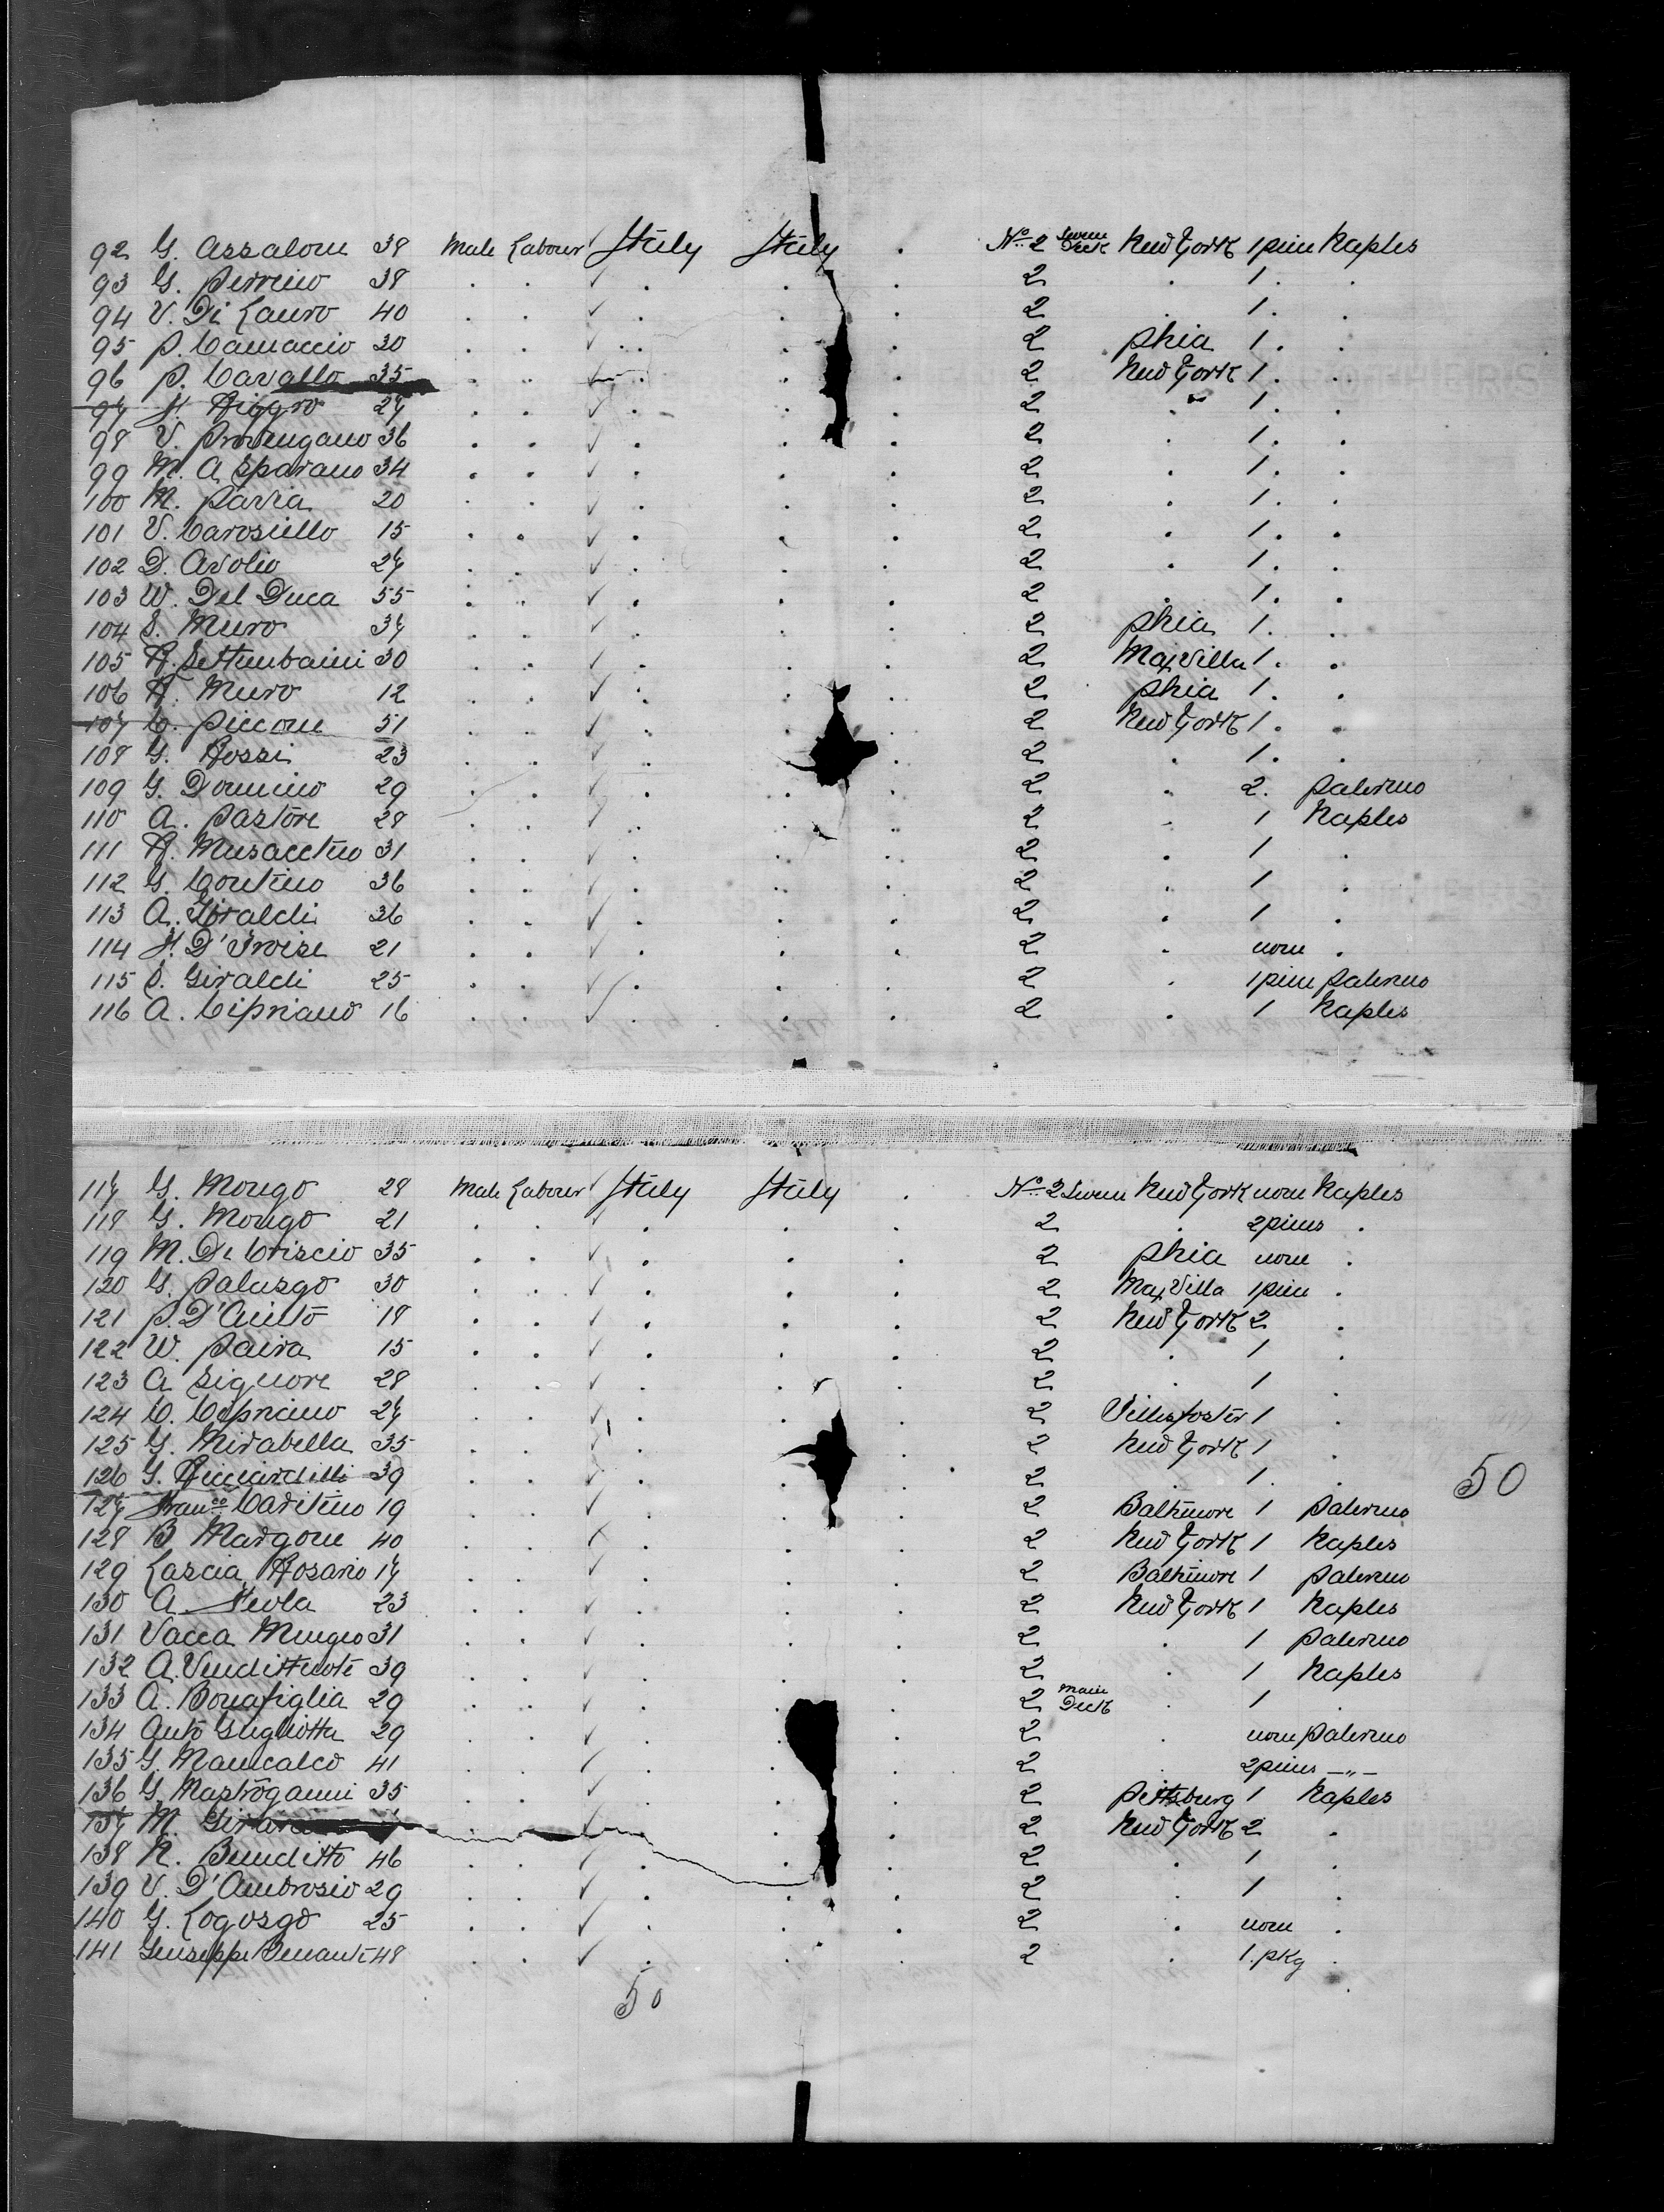 92 G. Assalone 38 Male Labourer Italy Italy . No. 2 Deck New York 1 piece Naples
93 G. Perrino 38 . . . . . 2 . 1 . .
94 V. Di Lauro 40 . . . . . 2 . 1 . .
95 P. Camaccio 30 . . . . . 2 Phia 1 . .
96 P. Cavallo 35 . . . . . 2 New York 1 . .
97 F. Riggro 27 . . . . . 2 " 1 . .
98 V. Provengano 36 . . . . . 2 . 1 . .
99 M. A. Sparano 34 . . . . . 2 . 1 . .
100 M. Pavia 20 . . . . . 2 . 1 . .
101 V. Carosiello 15 . . . . . 2 . 1 . .
102 D. Avolio 27 . . . . . 2 . 1 . .
103 W. Del Duca 55 . . . . . 2 . 1 . .
104 S. Muro 37 . . . . . 2 Phia 1 . .
105 R. Settembaini 30 . . . . . 2 Max Villa 1 . .
106 R. Muro 12 . . . . . 2 Phia 1 . .
107 C. Piccone 51 . . . . . 2 New York 1 . .
108 G. Rossi 23 . . . . . 2 . 1 . .
109 G. Domino 29 . . . . . 2 . 2 . Palermo
110 A. Pastore 28 . . . . . 2 . 1 Naples
111 R. Musacchio 31 . . . . . 2 . 1 .
112 G. Contino 36 . . . . . 2 . 1 .
113 A. Giraldi 26 . . . . . 2 . 1 .
114 F. 21 . . . . . 2 . none .
115 S. Giraldi 25 . . . . . 2 . 1 piece Palermo
116 A. Cipriano 16 . . . . . 2 . 1 Naples
117 G. Mongo 28 Male Labourer Italy Italy . No. 2 New York none Naples
118 G. Mongo 21 . . . . . 2 . 2 pieces .
119 M. De Criscio 35 . . . . . 2 Phia none .
120 G. Palusgo 30 . . . . . 2 Max Villa 1 piece .
121 P. D'Auito 18 . . . . . 2 New York 2 .
122 W. Paira 15 . . . . . 2 . 1 .
123 A Signore 28 . . . . . 2 . 1 .
124 C. Cipriano 27 . . . . . 2 1 .
125 G. Mirabella 35 . . . . . 2 New York 1 .
126 G. Ricciardelli 39 . . . . . 2 . 1 . .
50
127 Franco 19 . . . . . 2 Baltimore 1 Palermo
128 B. Margone 40 . . . . . 2 New York 1 Naples
129 Lascia Rosario 17 . . . . . 2 Baltimore 1 Palermo
130 A. Feola 23 . . . . . 2 New York 1 Naples
131 Vacca 31 . . . . . 2 . 1 Palermo
132 A. 39 . . . . . 2 . 1 Naples
133 A. Bonafiglia 29 . . . . . 2 Main Deck . 1 .
134 Anto Gugliotta 29 . . . . . 2 . none Palermo
135 G. Mancalco 41 . . . . . 2 . 2 pieces —"—
136 G. Mastroganni 35 . . . . . 2 Pittsburg 1 Naples
137 M. . . . . . 2 New York 2 .
138 N. Benedetto 46 . . . . . 2 . 1 .
139 V. D'Ambrosio 29 . . . . . 2 . 1 .
140 G. Logosgo 25 . . . . . 2 . none .
141 Giuseppe 48 . . . . . 2 . 1. pkg .
50